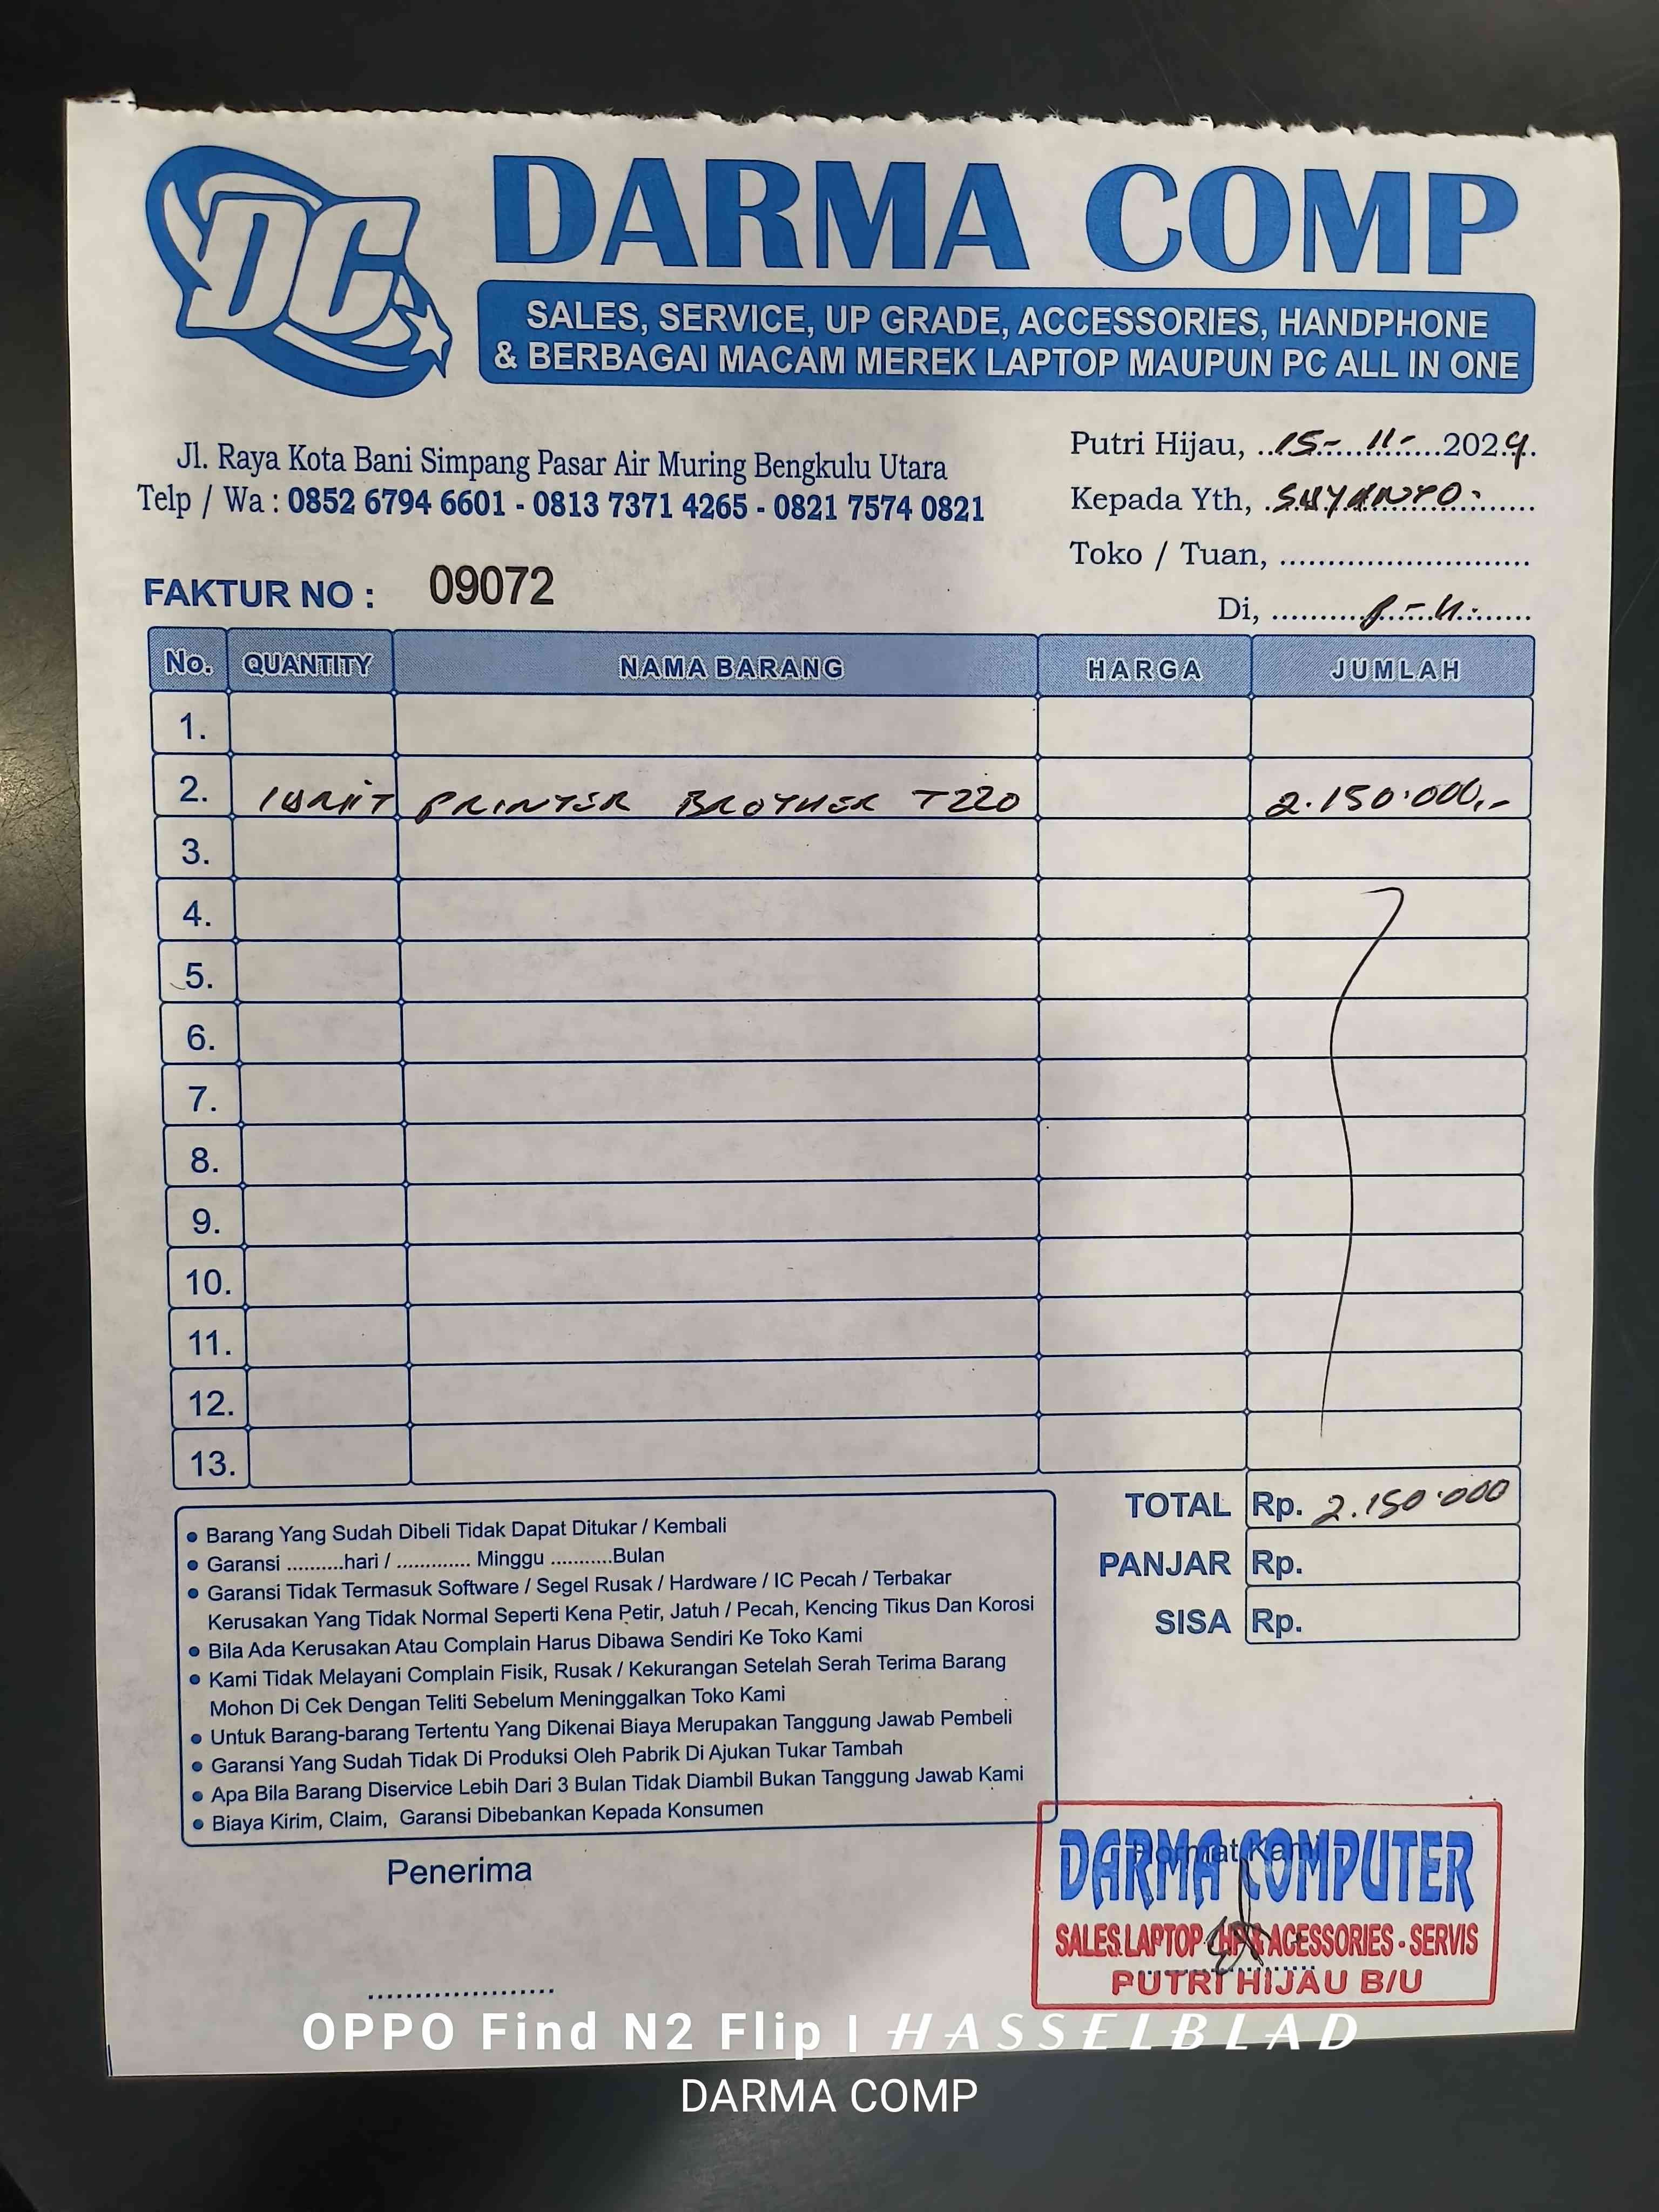 DC
DARMA COMP
SALES, SERVICE, UP GRADE, ACCESSORIES, HANDPHONE
& BERBAGAI MACAM MEREK LAPTOP MAUPUN PC ALL IN ONE
Jl. Raya Kota Bani Simpang Pasar Air Muring Bengkulu Utara
Telp / Wa : 0852 6794 6601 - 0813 7371 4265 - 0821 7574 0821
Putri Hijau, ..15-..11-......2024.
Kepada Yth, .SUYANTO.......
Toko / Tuan, ..........................
Di, ..........P-H.........
FAKTUR NO : 09072
No. QUANTITY NAMA BARANG HARGA JUMLAH
1.
2. 1 UNIT PRINTER BROTHER T220 2.150.000,-
3.
4.
5.
6.
7.
8.
9.
10.
11.
12.
13.
TOTAL Rp. 2.150.000
PANJAR Rp.
SISA Rp.
• Barang Yang Sudah Dibeli Tidak Dapat Ditukar / Kembali
• Garansi ..........hari / ............. Minggu ...........Bulan
• Garansi Tidak Termasuk Software / Segel Rusak / Hardware / IC Pecah / Terbakar
Kerusakan Yang Tidak Normal Seperti Kena Petir, Jatuh / Pecah, Kencing Tikus Dan Korosi
• Bila Ada Kerusakan Atau Complain Harus Dibawa Sendiri Ke Toko Kami
• Kami Tidak Melayani Complain Fisik, Rusak / Kekurangan Setelah Serah Terima Barang
Mohon Di Cek Dengan Teliti Sebelum Meninggalkan Toko Kami
• Untuk Barang-barang Tertentu Yang Dikenai Biaya Merupakan Tanggung Jawab Pembeli
• Garansi Yang Sudah Tidak Di Produksi Oleh Pabrik Di Ajukan Tukar Tambah
• Apa Bila Barang Diservice Lebih Dari 3 Bulan Tidak Diambil Bukan Tanggung Jawab Kami
• Biaya Kirim, Claim, Garansi Dibebankan Kepada Konsumen
Penerima
Hormat Kami
DARMA COMPUTER
SALES LAPTOP - HP & ACESSORIES - SERVIS
PUTRI HIJAU B/U
OPPO Find N2 Flip | HASSELBLAD
DARMA COMP